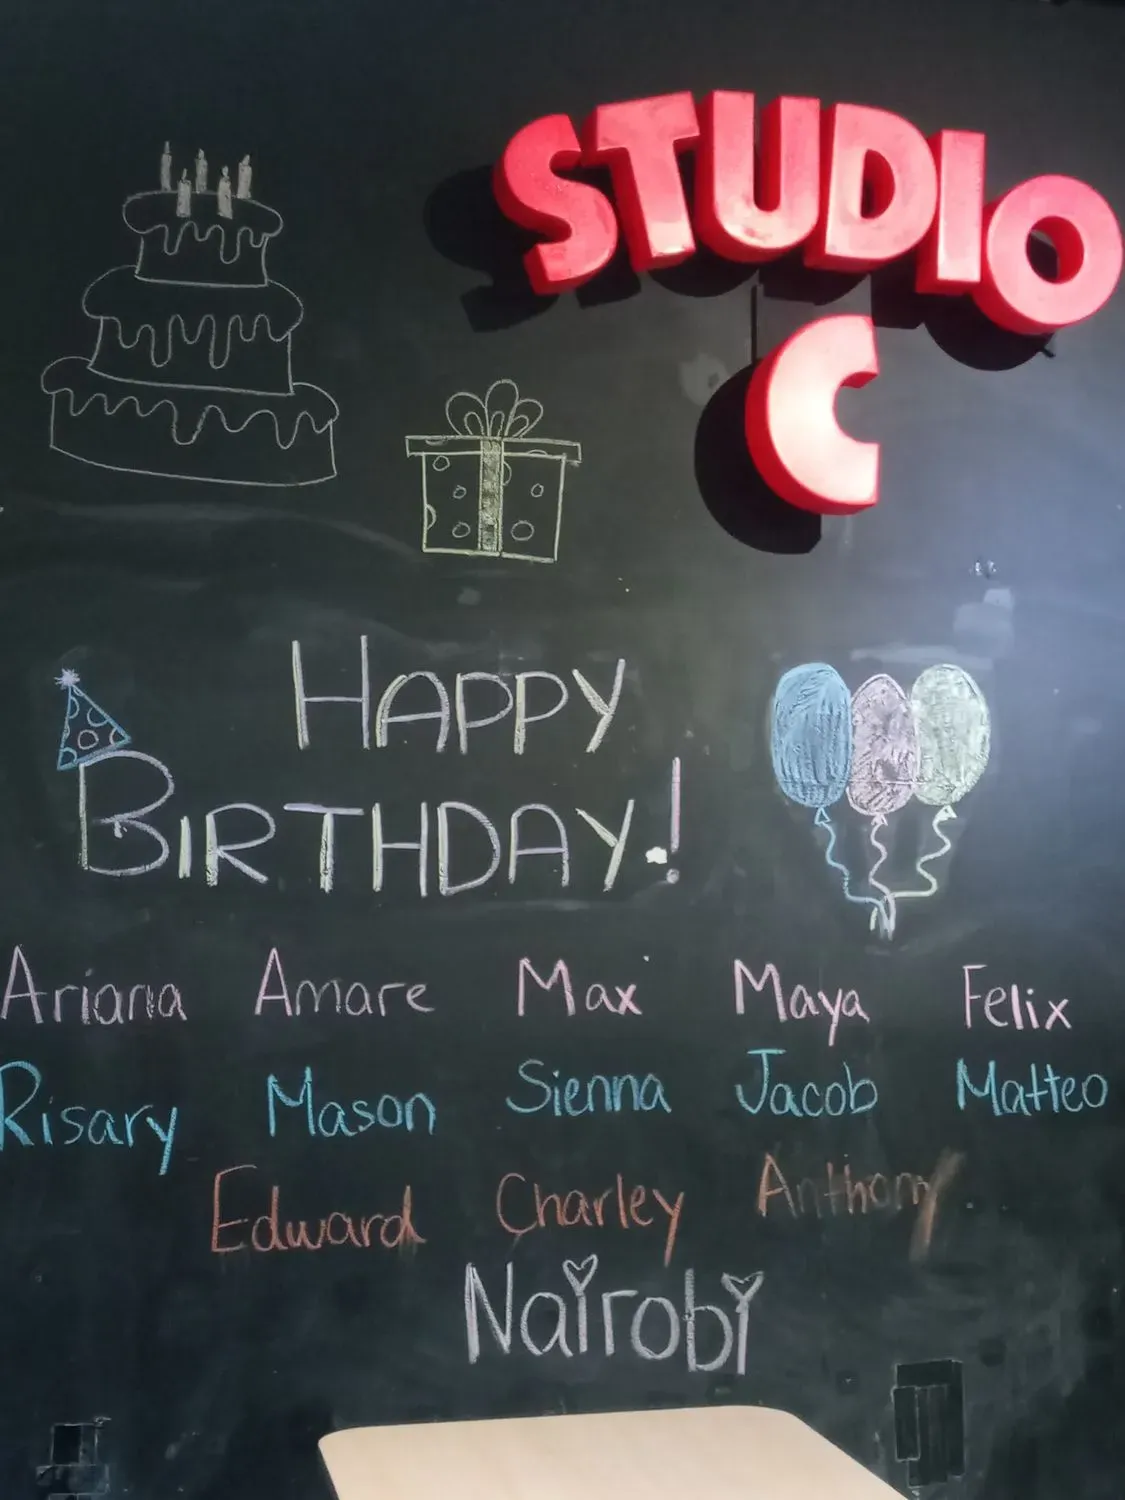 STUDIO
C
HAPPY
BIRTHDAY!
Ariana Amare Max Maya Felix
Risary Mason Sienna Jacob Matteo
Edward Charley Anthony
Nairobi